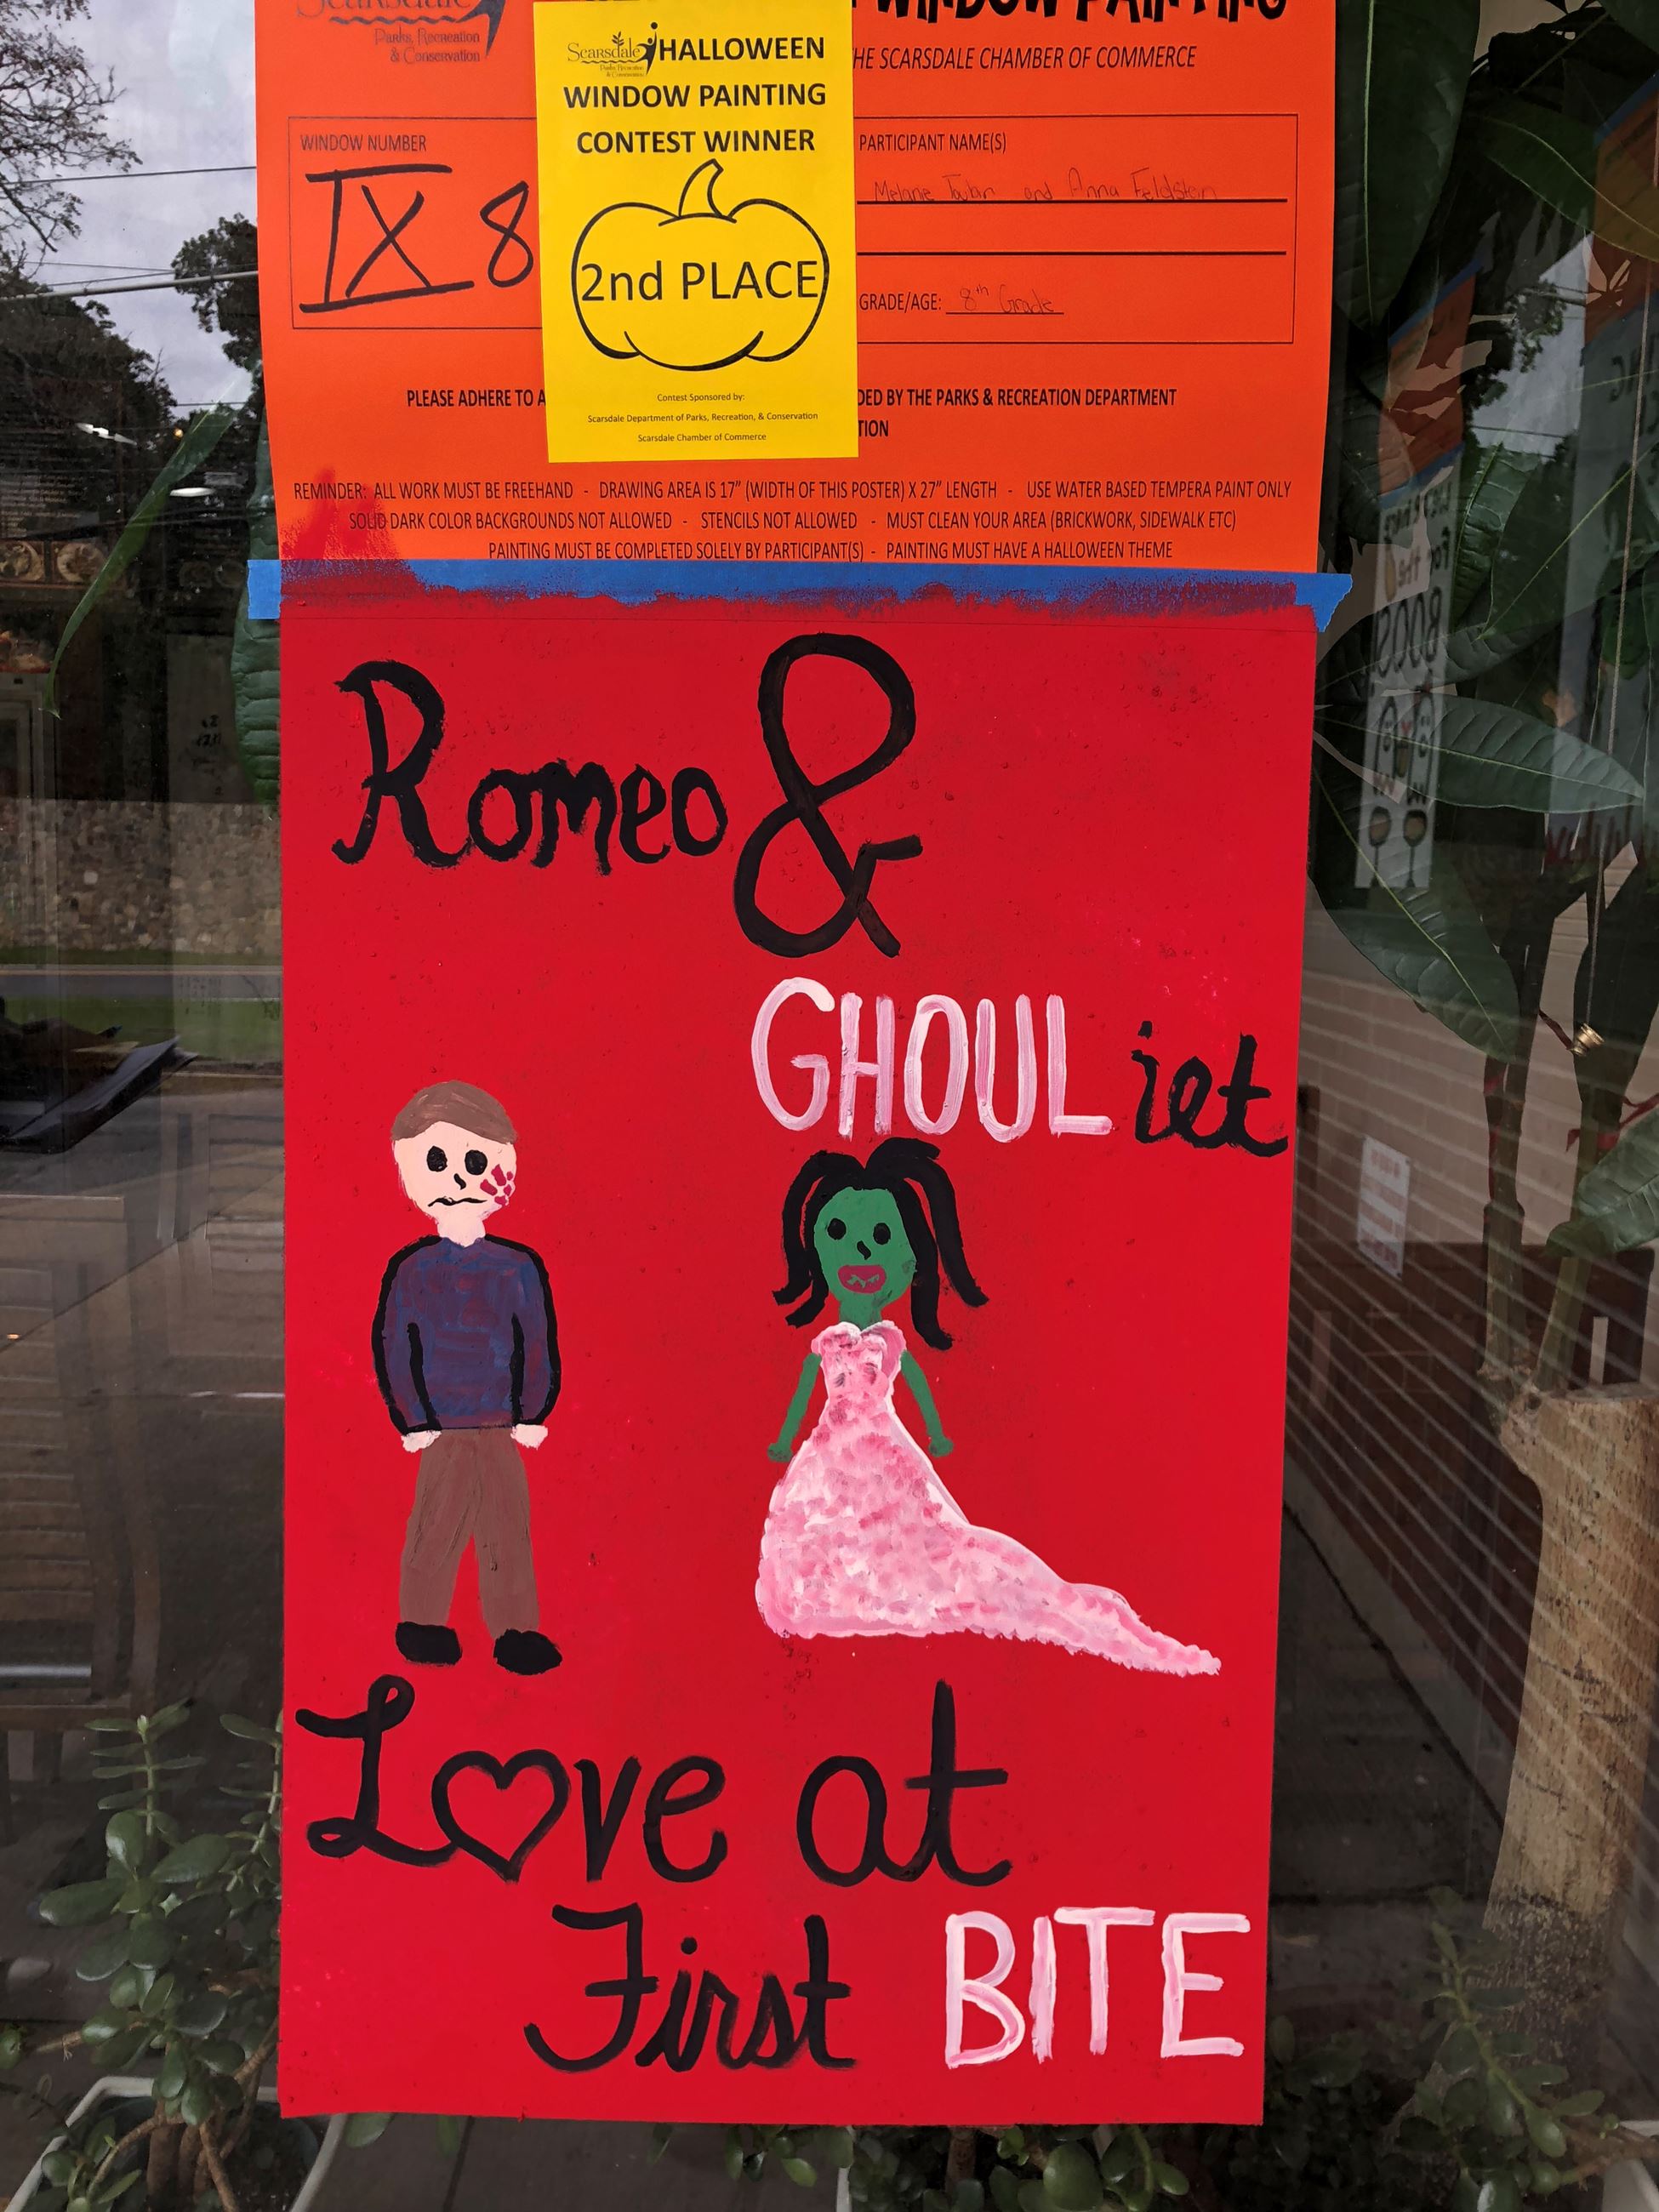 Scarsdale
Parks, Recreation
& Conservation
WINDOW PAINTING
HE SCARSDALE CHAMBER OF COMMERCE
Scarsdale
Parks, Recreation
& Conservation
HALLOWEEN
WINDOW PAINTING
CONTEST WINNER
2nd PLACE
Contest Sponsored by:
Scarsdale Department of Parks, Recreation, & Conservation
Scarsdale Chamber of Commerce
WINDOW NUMBER
IX 8
PARTICIPANT NAME(S)
Melanie and Anna Feldstein
GRADE/AGE: 8th Grade
PLEASE ADHERE TO A
DED BY THE PARKS & RECREATION DEPARTMENT
TION
REMINDER: ALL WORK MUST BE FREEHAND - DRAWING AREA IS 17" (WIDTH OF THIS POSTER) X 27" LENGTH - USE WATER BASED TEMPERA PAINT ONLY
SOLID DARK COLOR BACKGROUNDS NOT ALLOWED - STENCILS NOT ALLOWED - MUST CLEAN YOUR AREA (BRICKWORK, SIDEWALK ETC)
PAINTING MUST BE COMPLETED SOLELY BY PARTICIPANT(S) - PAINTING MUST HAVE A HALLOWEEN THEME
Romeo &
GHOULiet
Love at
First BITE